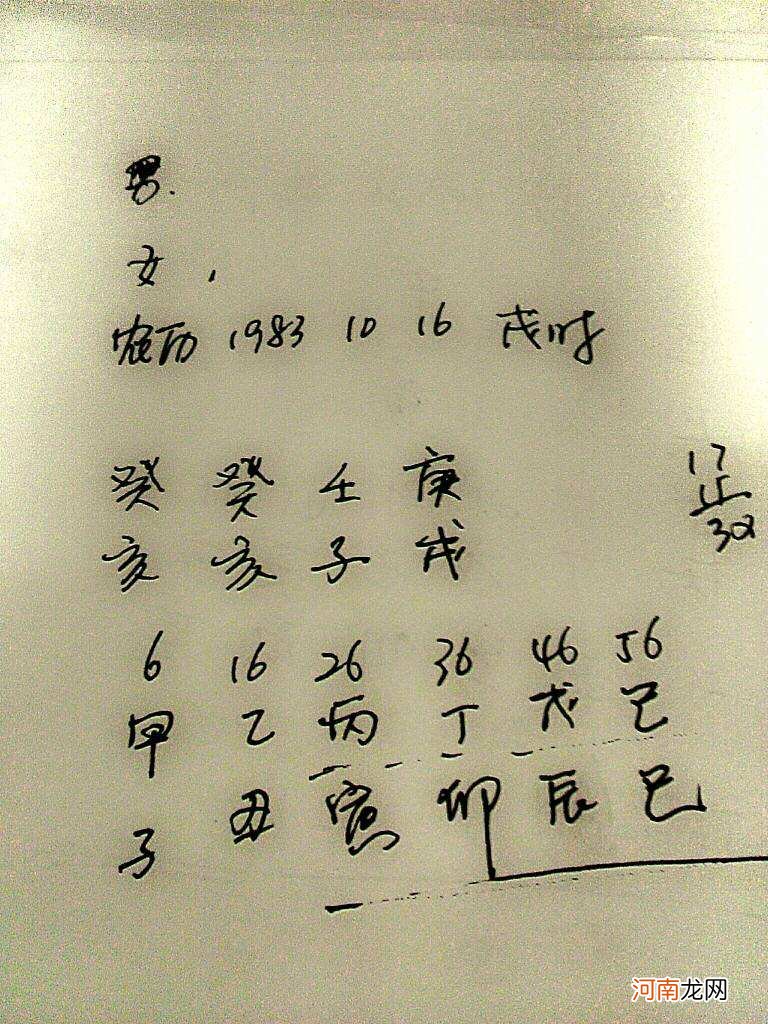 男.
女,
农历 1983 10 16 戌时
癸 癸 壬 庚
亥 亥 子 戌
17
正
6 16 26 36 46 56
甲 乙 丙 丁 戊 己
子 丑 寅 卯 辰 巳
河南龙网